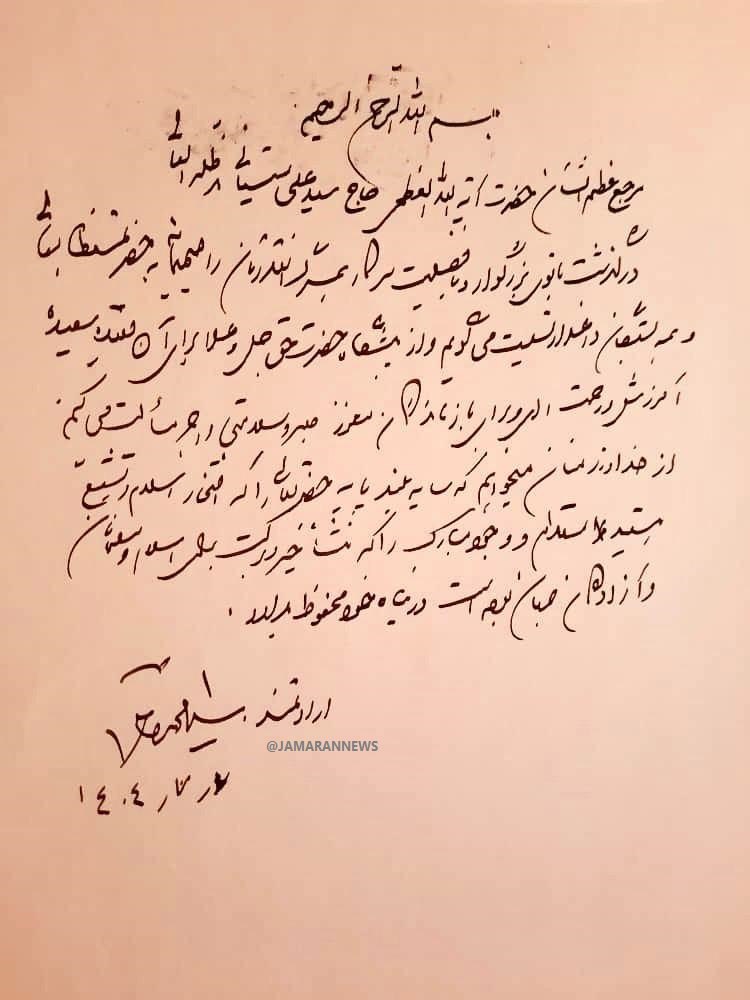 بسم الله الرحمن الرحیم
مرجع عظیم الشأن حضرت آیة الله العظمی حاج سید علی سیستانی مدظله العالی
درگذشت بانوی بزرگوار و با فضیلت سرکار همسر گرانقدرتان را صمیمانه به حضرتمستطاب‌عالی
و همه بستگان داغدار تسلیت می‌گویم و از پیشگاه حضرت حق جل و علا برای آن فقیده سعیده
آمرزش و رحمت الهی و برای بازماندگان معزز صبر و سلامتی و اجر مسألت می‌کنم
از خداوند منان میخواهم که سایه بلند پایه حضرتعالی را که افتخار اسلام و تشیع
هستید مستدام و وجود مبارک را که منشأ خیر و برکت برای اسلام و مسلمانان
و آزادگان جهان بوده است در پناه خود محفوظ بدارد.
ارادتمند سید محمد خاتمی
@JAMARANNEWS
آذر ۱۴۰۴